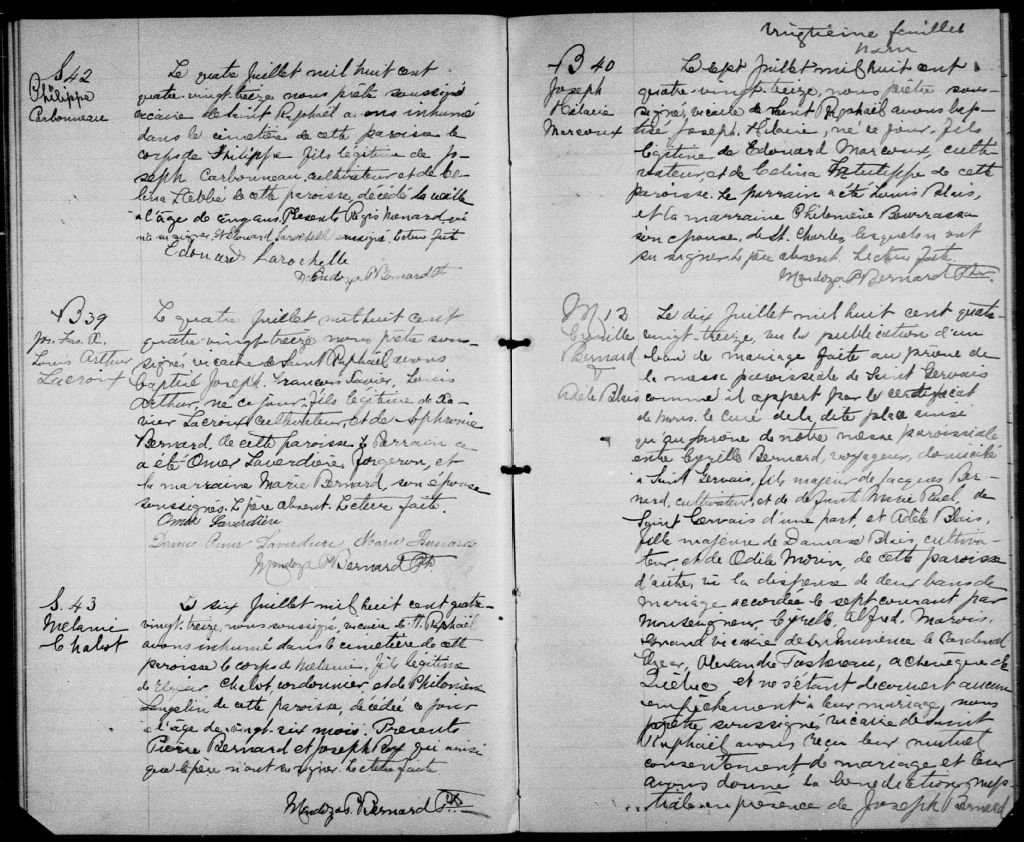 S. 42
Philippe
Carbonneau
Le quatre Juillet mil huit cent
quatre-vingt-treize nous prêtre soussigné
vicaire de Saint Raphaël avons inhumé
dans le cimetière de cette paroisse le
corps de Philippe fils légitime de Jo-
seph Carbonneau, cultivateur et de Cé-
lina Labbé de cette paroisse, décédé la veille
à l'âge de cinq ans. Présents Régis Monard, qui
n'a su signer, et Edouard Larochelle soussigné. Lecture faite
Edouard Larochelle
Mendoza P. Bernard Ptr
B 39
Jos. Frs. X.
Louis Arthur
Lacroix
Le quatre Juillet mil huit cent
quatre vingt-treize nous prêtre sous-
signé vicaire de Saint Raphaël avons
baptisé Joseph, François Xavier, Louis
Arthur, né ce jour, fils légitime de Xa-
vier Lacroix cultivateur, et de Sophronie
Bernard, de cette paroisse. Le Parrain
a été Omer Laverdière, forgeron, et
la marraine Marie Bernard son épouse
soussignés. Le père absent. Lecture faite.
Omer Laverdière
Dame Omer Laverdière Marie Bernard
Mendoza P. Bernard Ptr.
S. 43
Mélanie
Chabot
Le six Juillet mil huit cent quatre-
vingt-treize, nous soussigné, vicaire de St. Raphaël
avons inhumé dans le cimetière de cette
paroisse le corps de Mélanie, fille légitime
de Elzéar Chabot, cordonnier, et de Philomène
Langelin de cette paroisse, décédée ce jour
à l'âge de vingt-six mois. Présents
Pierre Bernard et Joseph Roy qui ainsi
que le père n'ont su signer. Lecture faite
Mendoza P. Bernard Ptr
vingtième feuillet
B 40
Joseph
Hilaire
Marcoux
Le sept Juillet mil huit cent
quatre-vingt-treize, nous prêtre sous-
signé, vicaire de Saint Raphaël avons bap-
tisé Joseph Hilaire, né ce jour, fils
légitime de Edouard Marcoux, culti-
vateur, et de Célina Latulippe de cette
paroisse. Le parrain a été Louis Blais,
et la marraine Philomène Bourrassa
son épouse, de St. Charles, lesquels n'ont
su signer. Le père absent. Lecture faite.
Mendoza P. Bernard Ptr.
M 13
Cyrille
Bernard
&
Adèle Blais
Le dix Juillet mil huit cent quatre-
vingt-treize, vu la publication d'un
ban de mariage faite au prône de
la messe paroissiale de Saint Gervais
comme il appert par le certificat
de Mons. le Curé de la dite place ainsi
qu'au prône de notre messe paroissiale
entre Cyrille Bernard, voyageur, domicilié
à Saint Gervais, fils majeur de Jacques Ber-
nard, cultivateur, et de defunte Marie de
Saint Gervais d'une part, et Adèle Blais,
fille majeure de Damase Blais, cultiva-
teur, et de Odile Morin, de cette paroisse
d'autre, vu la dispense de deux bans de
mariage accordée le sept courant par
Monseigneur, Cyrille, Alfred, Marois,
Grand vicaire de Son Eminence le Cardinal
Elzéar, Alexandre Taschereau, Archevêque de
Québec et ne s'étant découvert aucun
empêchement à leur mariage, nous
prêtre soussigné vicaire de Saint
Raphaël avons reçu leur mutuel
consentement de mariage et leur
avons donné la bénédiction nup-
tiale en présence de Joseph Bernard